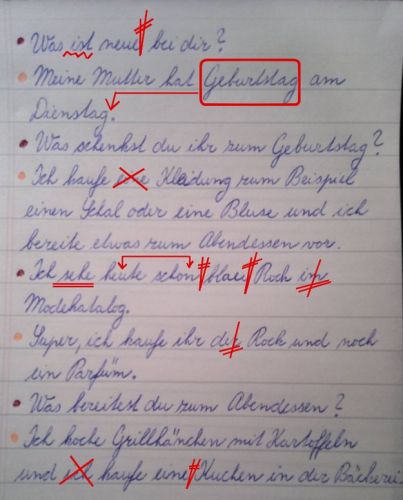 Was ist neue bei dir?
Meine Mutter hat Geburtstag am
Dienstag.
Was schenkst du ihr zum Geburtstag?
Ich kaufe eine Kleidung zum Beispiel
einen Schal oder eine Bluse und ich
bereite etwas zum Abendessen vor.
Ich sehe heute schon blaei Roch im
Modekatalog.
Super, ich kaufe ihr der Rock und noch
ein Parfüm.
Was bereitest du zum Abendessen?
Ich koche Grillhänchen mit Kartoffeln
und ich kaufe eine Kuchen in der Bäckerei.